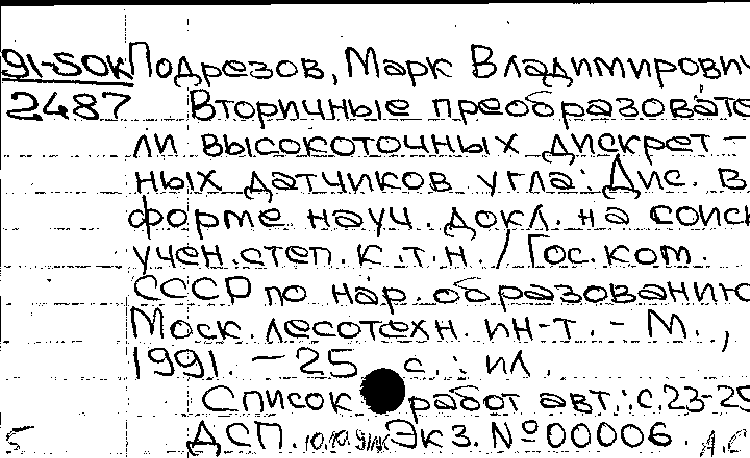 91-SOK Подрезов, Марк Владимирович
2487 Вторичные преобразовате
ли высокоточных дискрет-
ных датчиков угла: Дис. в
форме науч. докл. на соиск
учен. степ. к.т.н. / Гос. ком.
СССР по нар. образованию
Моск. лесотехн. ин-т. - М.,
1991. - 25 с.: ил.
Список работ авт.: с. 23-25
5 ДСП. Экз. № 00006. А.С